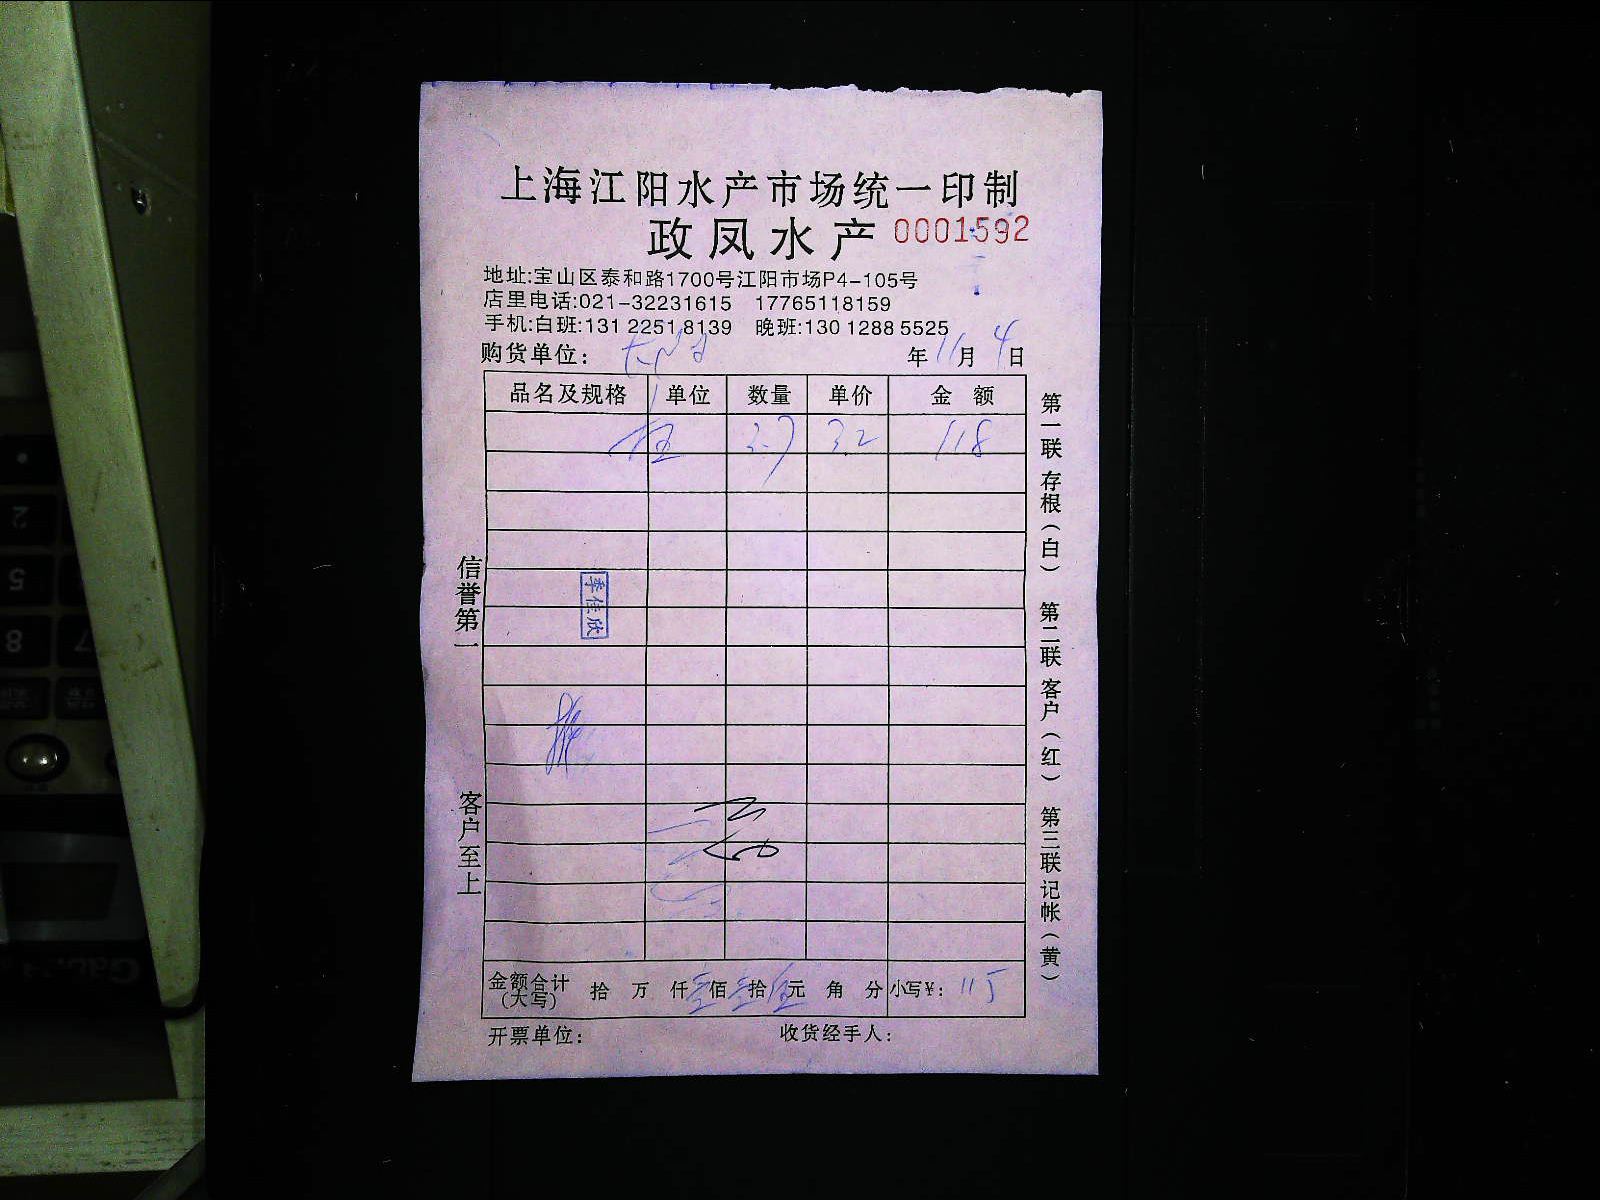 上海江阳水产市场统一印制
政凤水产 0001592
地址:宝山区泰和路1700号江阳市场P4-105号
店里电话:021-32231615 17765118159
手机:白班:131 2251 8139 晚班:130 1288 5525
购货单位: 年 11 月 4 日
品名及规格 单位 数量 单价 金额
3.7 32 118
季佳欣
金额合计(大写) 拾 万 仟 壹 佰 壹 拾 伍 元 角 分 小写¥: 115
开票单位: 收货经手人:
信誉第一
客户至上
第一联 存根(白) 第二联 客户(红) 第三联 记帐(黄)
2
5
8
7